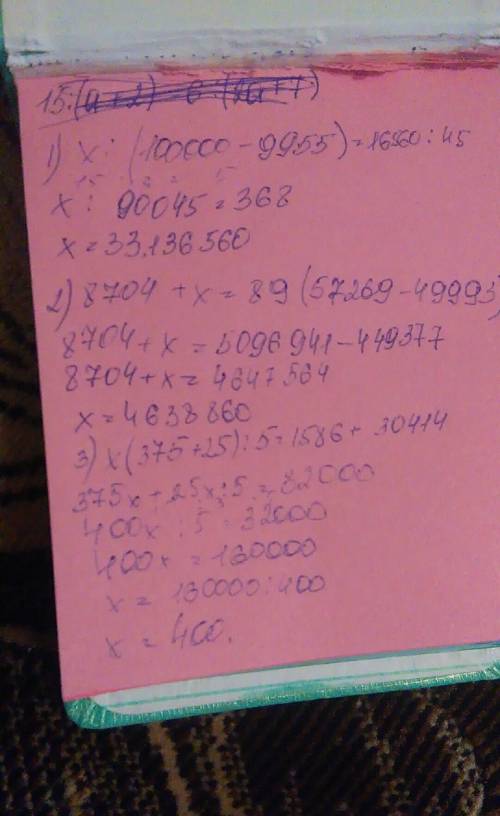 15:(a+2) 6 (2a+7)
1) x : (100000-9955)=16560:45
x : 90045=368
x=33.136560
2) 8704+x=89(57269-49993)
8704+x=5096941-449377
8704+x=4647564
x=4638860
3) x(375+25):5=1586+30414
375x+25x:5=32000
400x:5=32000
400x=160000
x=160000:400
x=400.